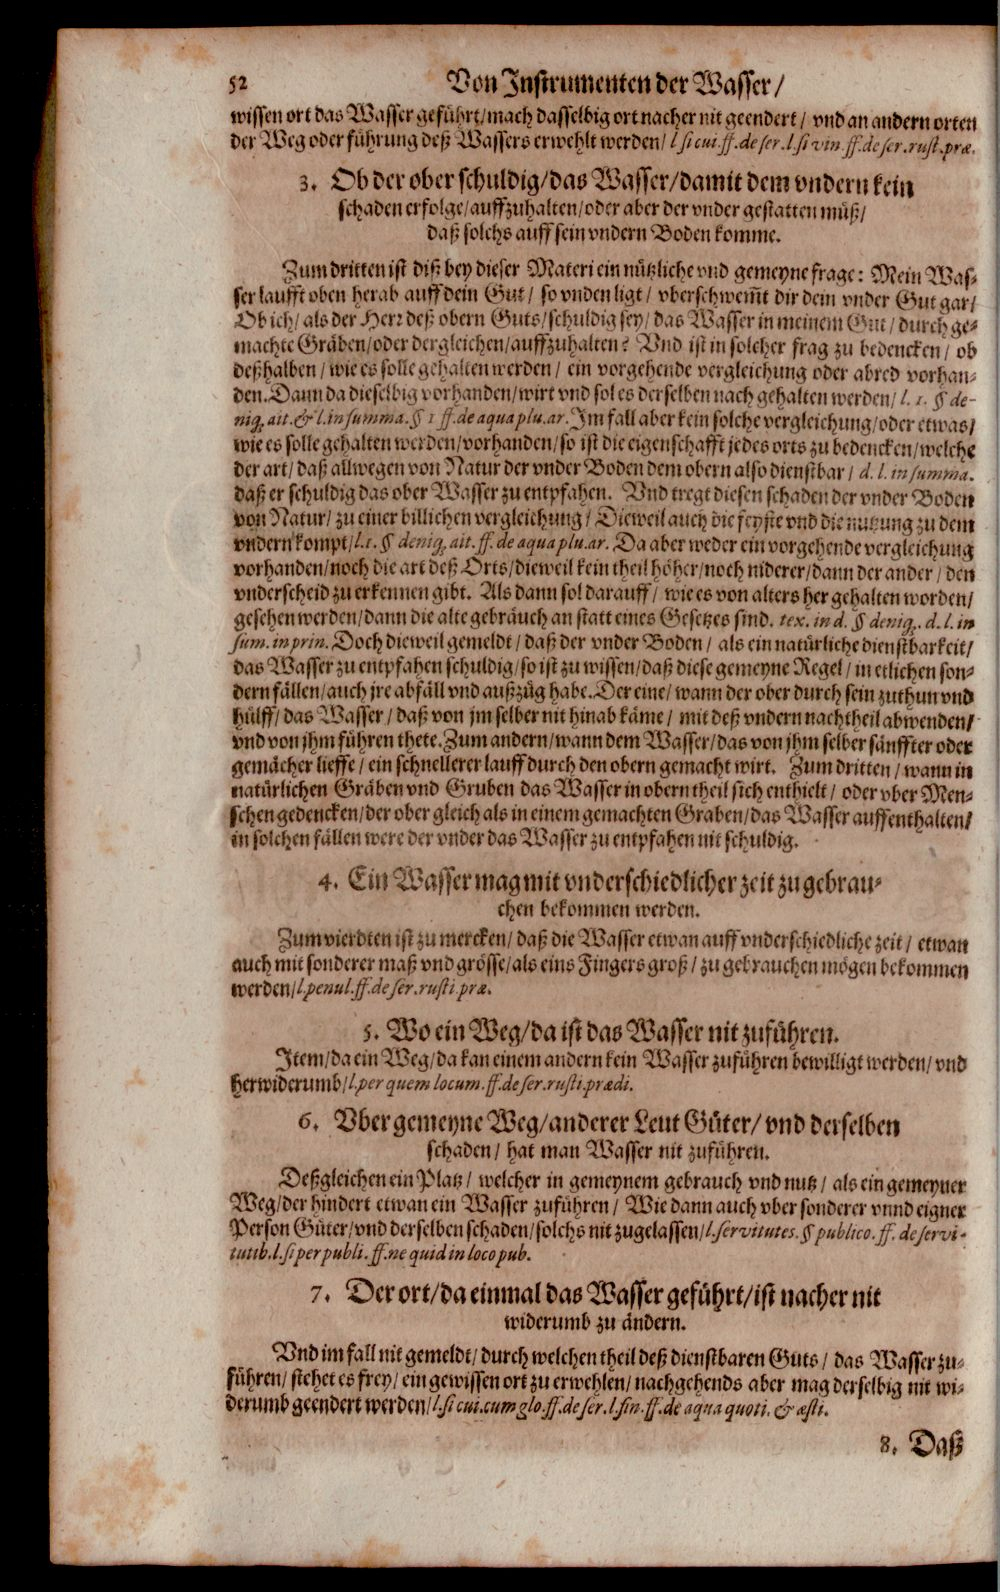 52 Von Instrumenten der Wasser/
wissen ort das Wasser geführt/mach dasselbig ort nacher nit geendert/ vnd an andern orten
der Weg oder führung deß Wassers erwehlt werden/ l. si cui. ff. de ser. l. si vin. ff. de ser. rust. præ.
3. Ob der ober schuldig/das Wasser/damit dem vndern kein
schaden erfolge/auffzuhalten/oder aber der vnder gestatten müß/
daß solchs auff sein vndern Boden komme.
Zum dritten ist diß bey dieser Materi ein nützliche vnd gemeyne frage: Mein Was-
ser laufft oben herab auff dein Gut/ so vnden ligt/ vberschwem̃t dir dein vnder Gut gar/
Ob ich/als der Herr deß obern Guts/schuldig sey/ das Wasser in meinem Gut/ durch ge-
machte Gräben/oder dergleichen/auffzuhalten? Vnd ist in solcher frag zu bedencken/ ob
deßhalben/ wie es solle gehalten werden/ ein vorgehende vergleichung oder abred vorhan-
den. Dann da dieselbig vorhanden/wirt vnd sol es derselben nach gehalten werden/ l. 1. § de-
niq. ait. & l. in summa. § 1 ff. de aqua plu. ar. Im fall aber kein solche vergleichung/oder etwas/
wie es solle gehalten werden/vorhanden/so ist die eigenschafft jedes orts zu bedencken/welche
der art/ daß allwegen von Natur der vnder Boden dem obern also dienstbar/ d. l. in summa.
daß er schuldig das ober Wasser zu entpfahen. Vnd tregt diesen schaden der vnder Boden
von Natur/ zu einer billichen vergleichung/ Dieweil auch die feyste vnd die nutzung zu dem
vndern kompt/ l. 1. § deniq. ait. ff. de aqua plu. ar. Da aber weder ein vorgehende vergleichung
vorhanden/noch die art deß Orts/dieweil kein theil höher/noch niderer/dann der ander/ den
vnderscheid zu erkennen gibt. Als dann sol darauff/ wie es von alters her gehalten worden/
gesehen werden/dann die alte gebräuch an statt eines Gesetzes sind. tex. in d. § deniq. d. l. in
sum. in prin. Doch dieweil gemeldt/ daß der vnder Boden/ als ein natürliche dienstbarkeit/
das Wasser zu entpfahen schuldig/so ist zu wissen/daß diese gemeyne Regel/ in etlichen son-
dern fällen/auch jre abfäll vnd außzüg habe. Der eine/ wann der ober durch sein zuthun vnd
hülff/das Wasser/ daß von jm selber nit hinab käme/ mit deß vndern nachtheil abwenden/
vnd von jhm führen thete. Zum andern/wann dem Wasser/das von jhm selber sänffter oder
gemächer lieffe/ ein schnellerer lauff durch den obern gemacht wirt. Zum dritten/ wann in
natürlichen Gräben vnd Gruben das Wasser in obern theil sich enthielt/ oder vber Men-
schen gedencken/der ober gleich als in einem gemachten Graben/das Wasser auffenthalten/
in solchen fällen were der vnder das Wasser zu entpfahen nit schuldig.
4. Ein Wasser mag mit vnderschiedlicher zeit zu gebrau-
chen bekommen werden.
Zum vierdten ist zu mercken/ daß die Wasser etwan auff vnderschiedliche zeit/ etwan
auch mit sonderer maß vnd grösse/als eins Fingers groß/ zu gebrauchen mögen bekommen
werden/ l. penul. ff. de ser. rusti. præ.
5. Wo ein Weg/da ist das Wasser nit zuführen.
Item/da ein Weg/da kan einem andern kein Wasser zuführen bewilligt werden/ vnd
herwiderumb/ l. per quem locum. ff. de ser. rusti. prædi.
6. Vber gemeyne Weg/anderer Leut Güter/ vnd derselben
schaden/ hat man Wasser nit zuführen.
Deßgleichen ein Platz/ welcher in gemeynem gebrauch vnd nutz/ als ein gemeyner
Weg/der hindert etwan ein Wasser zuführen/ Wie dann auch vber sonderer vnnd eigner
Person Güter/vnd derselben schaden/solchs nit zugelassen/ l. servitutes. § publico. ff. de servi-
tutib. l. si per publi. ff. ne quid in loco pub.
7. Der ort/da einmal das Wasser geführt/ist nacher nit
widerumb zu ändern.
Vnd im fall nit gemeldt/durch welchen theil deß dienstbaren Guts/ das Wasser zu-
führen/ stehet es frey/ ein gewissen ort zu erwehlen/ nachgehends aber mag derselbig nit wi-
derumb geendert werden/ l. si cui. cum glo. ff. de ser. l. fin. ff. de aqua quoti. & æsti.
8. Daß